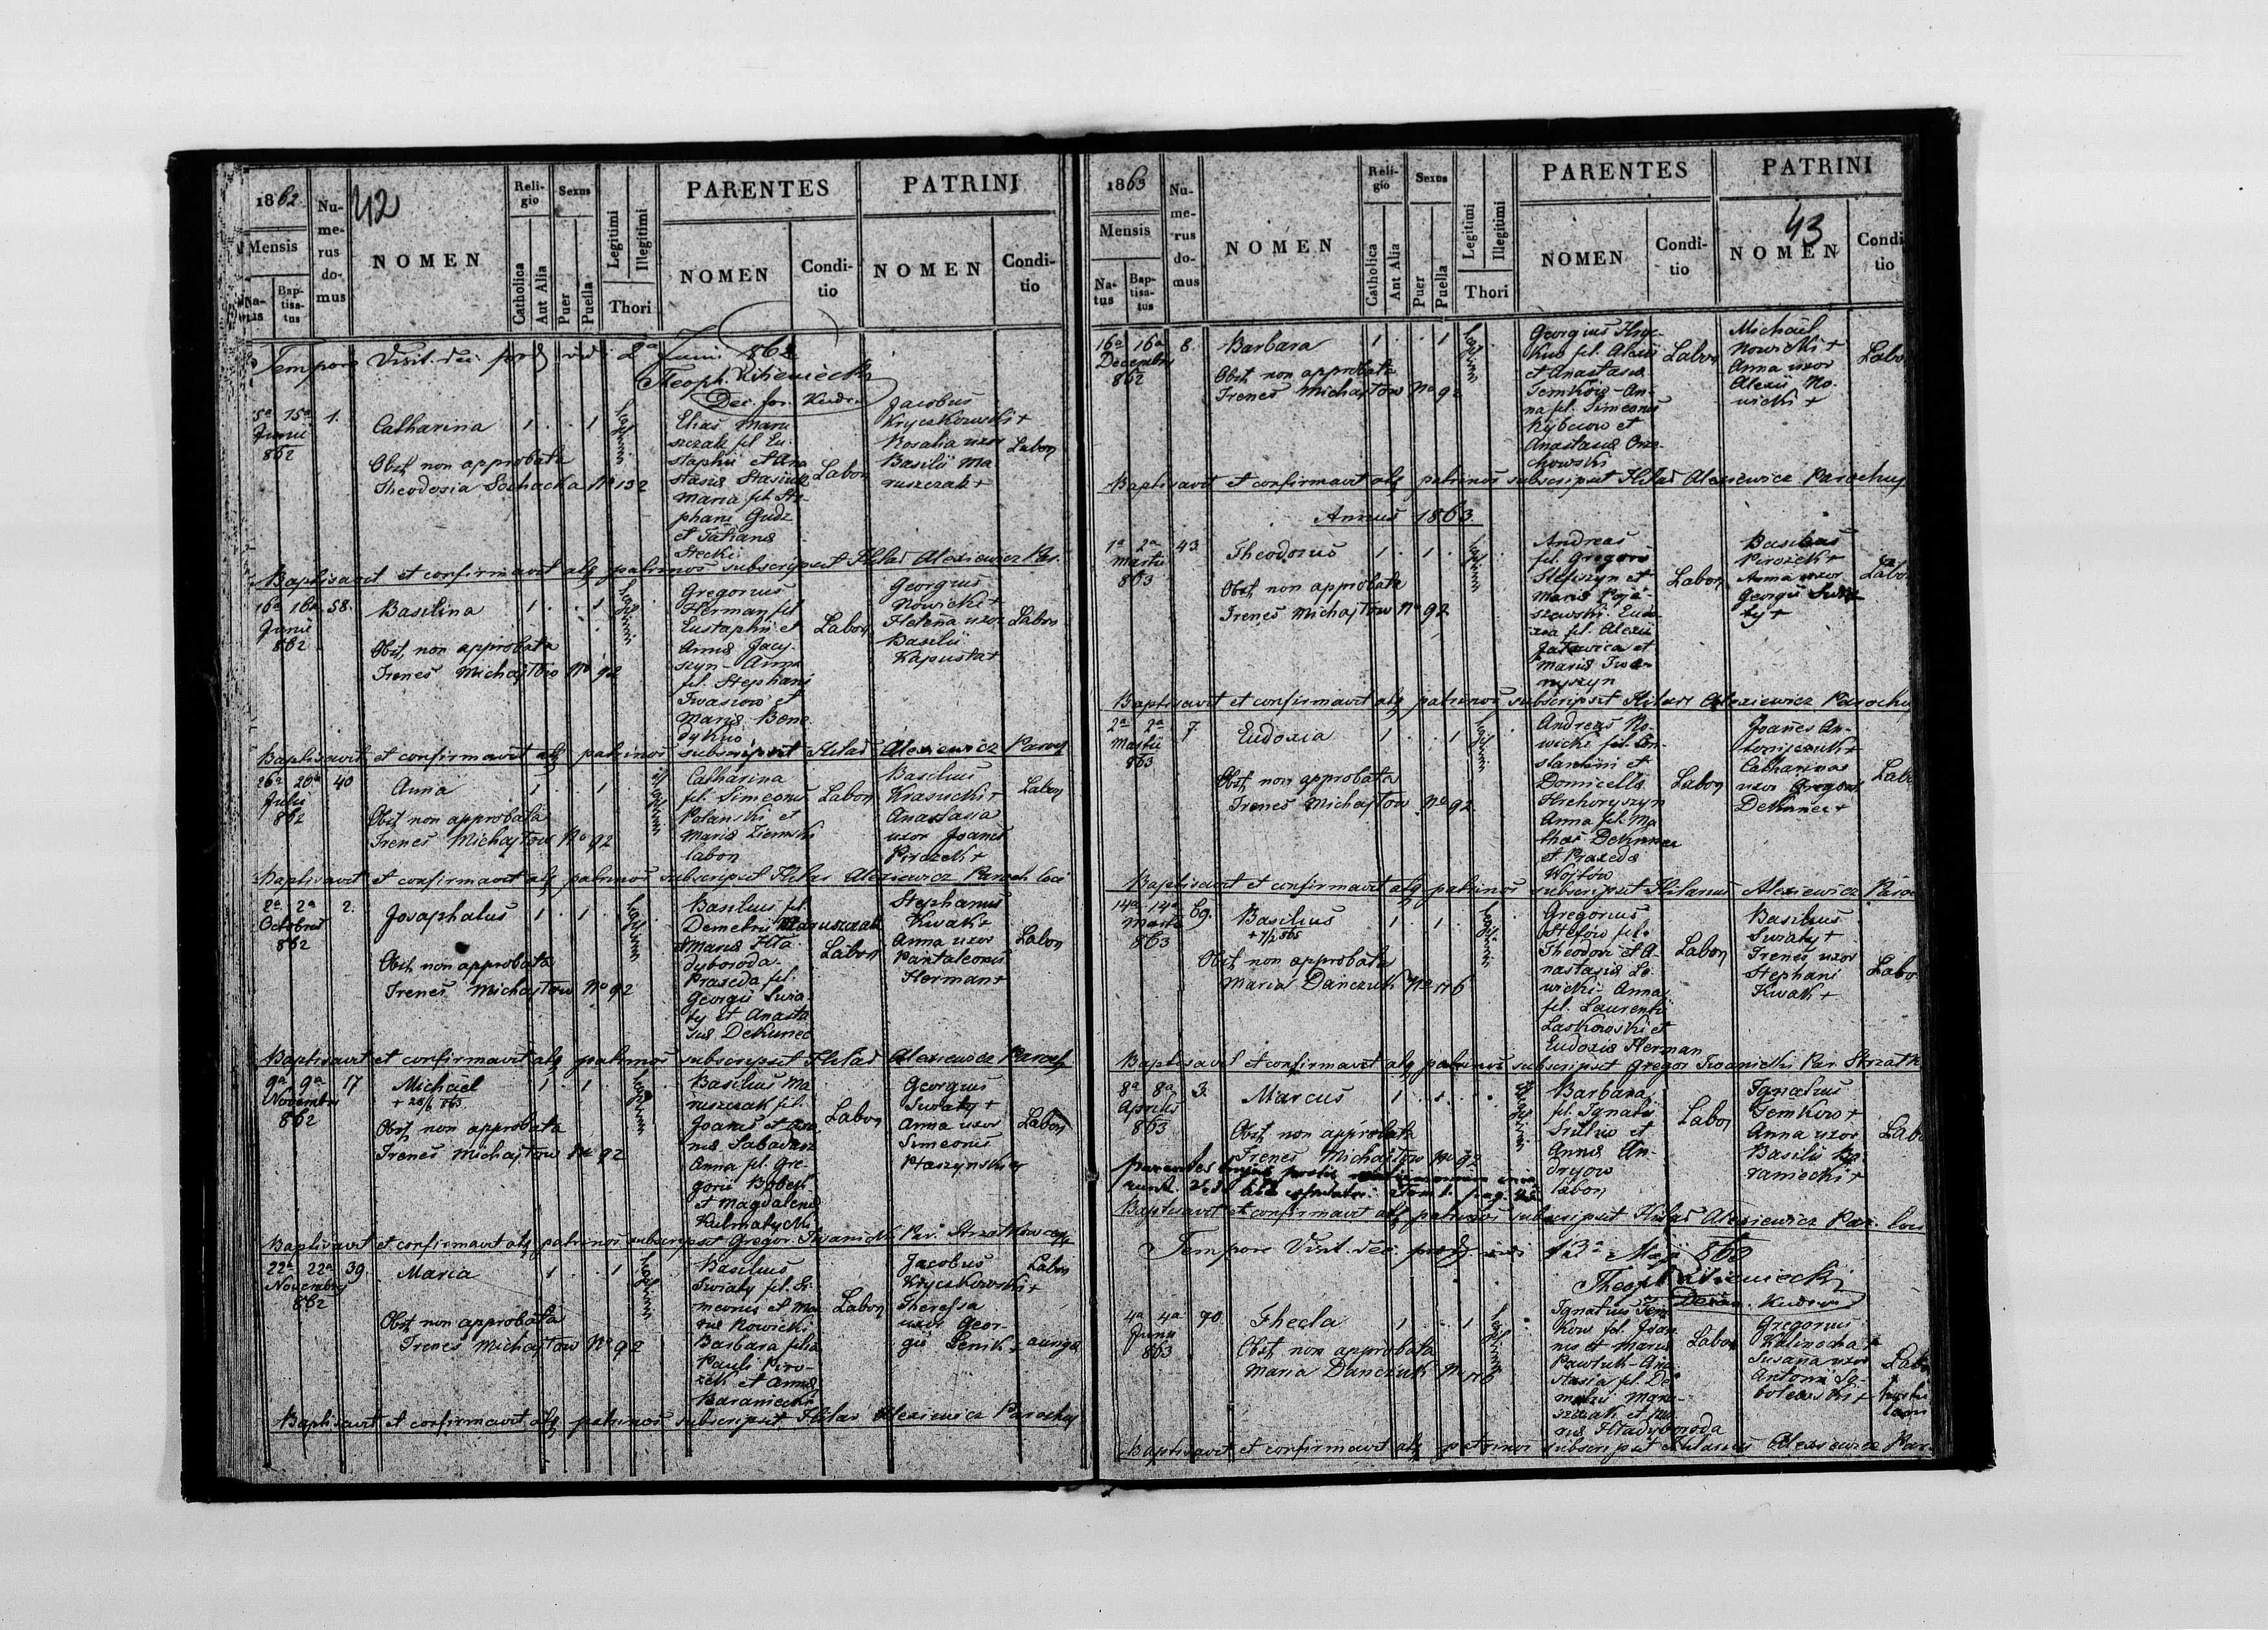 1862
42
Mensis
Natus
Baptisatus
Numerus domus
NOMEN
Religio
Catholica
Aut Alia
Sexus
Puer
Puella
Legitimi
Illegitimi
Thori
PARENTES
NOMEN
Conditio
PATRINI
NOMEN
Conditio
Tempore Visit. dec. 2a Junii 862
Theoph.
15a Junii 862
1.
Catharina
1 . . 1
Obst. non approbata
Theodosia Sochacka No 132
Elias Maru
szczak fil. Eu
staphii et Ana
stasiæ Stasiuk
Maria fil. Ste
phani Gudz
et Tatianæ
Stecki
Labor
Jacobus
Kryczkowski +
Rosalia uxor
Basilii Ma
ruszczak +
Labor
Baptisavit et confirmavit atq patrinos subscripsit Hilar Alexiewicz Par.
16a 16a 58.
Junii
862
Basilina
1 . . 1
Obst. non approbata
Irenes Michajłow No 92
Gregorius
Herman fil
Eustaphii et
Annæ Jacy
szyn - Anna
fil. Stephani
Iwasiow et
Mariæ Bene
dykuo
Labor
Georgius
Nowicki +
Helena uxor
Basilii
Kapusta +
Labor
Baptisavit et confirmavit atq patrinos subscripsit Hilar Alexiewicz Paroch
26a 26a 40
Julii
862
Anna
1 . 1
Obst non approbata
Irenes Michajłow No 92
Catharina
fil. Simeonis
Polanski et
Mariæ Ziemski
labor
Labor
Basilius
Krasucki +
Anastasia
uxor Joanis
Pirozek +
Labor
Baptisavit et confirmavit atq patrinos subscripsit Hilar Alexiewicz Paroch loci
2a 2a 2.
Octobris
862
Josaphatus
1 . 1
Obst. non approbata
Irenes Michajłow No 92
Basilius fil.
Demetrii Maruszczak
et Mariæ Hła
dyboroda
Praxeda fil.
Georgii Swia
ty et Anasta
siæ Dekunec
Labor
Stephanus
Kwak +
Anna uxor
Pantaleonis
Herman +
Labor
Baptisavit et confirmavit atq patrinos subscripsit Hilar Alexiewicz Paroch
9a 9a 17
Novembris
862
Michaël
+ 28/6 863.
1 . 1
Obst. non approbata
Irenes Michajłow No 92
Basilius Ma
ruszczak fil.
Joanis et
Anna fil. Gre
gorii
et Magdalenæ
Kulmatycki
Labor
Georgius
Swiaty +
Anna uxor
Simeonis
Ptaszynski +
Labor
Baptisavit et confirmavit atq patrinos subscripsit Gregor. Iwanicki Par. Strzałkow
22a 22a 39.
Novembris
862
Maria
1 . . 1
Obst non approbata
Irenes Michajłow No 92
Basilius
Swiaty fil. Si
meonis et Ma
riæ Nowicki
Barbara filia
Pauli Piro-
zek et Annæ
Baraniecki
Labor
Jacobus
Kryczkowski +
Theressa
uxor Geor-
gii Senik +
Labor
auriga
Baptisavit et confirmavit atq patrinos subscripsit Hilar Alexiewicz Parochus
1863
43
Mensis
Natus
Baptisatus
Numerus domus
NOMEN
Religio
Catholica
Aut Alia
Sexus
Puer
Puella
Legitimi
Illegitimi
Thori
PARENTES
NOMEN
Conditio
PATRINI
NOMEN
Conditio
16a 16a 8.
Decembris
862
Barbara
1 . . 1
Obst. non approbata
Irenes Michajłow No 92
Georgius
fil. Alexii
et Anastasiæ
Temkow - An
na fil. Simeonis
et
Anastasiæ Orze
chowski
Labor
Michaël
Nowicki +
Anna uxor
Alexii No-
wicki +
Labor
Baptisavit et confirmavit atq patrinos subscripsit Hilar Alexiewicz Parochus
Annus 1863.
1a 2a 43
Martii
863
Theodorus
1 . 1
Obst non approbata
Irenes Michajłow No 92
Andreas
fil. Gregorii
Stefiszyn et
Mariæ Poja-
szewski. Eudo
xia fil. Alexii
et
Mariæ Iwa
nyszyn
Labor
Basilius
Pirozek +
Anna uxor
Georgii Swia
ty +
Labor
Baptisavit et confirmavit atq patrinos subscripsit Hilar Alexiewicz Parochus
2a 2a 7.
Martii
863
Eudoxia
1 . . 1
Obst non approbata
Irenes Michajłow No 92
Andreas No-
wicki fil. Con
stantini et
Domicellæ
Hrehoryszyn
Anna fil. Ma
thæi Dekunec
et Praxedæ
Wojtow
Labor
Joañes An-
toniszczuk +
Catharina
uxor Gregorii
Dekunec +
Baptisavit et confirmavit atq patrinos subscripsit Hilarius Alexiewicz Paroc
14a 14a 69.
Martii
863
Basilius
+ 7/2 865
1 . 1
Obst non approbata
Maria Danczuk No 176
Gregorius
Stefiw fil.
Theodori et A-
nastasiæ Le
wicki - Anna
fil. Laurentii
Laskowski et
Eudoxiæ Herman
Labor
Basilius
Swiaty +
Irenes uxor
Stephani
Kwak +
Labor
Baptisavit et confirmavit atq patrinos subscripsit Gregor Iwanicki Par. Strzałk
8a 8a 3.
Aprilis
863
Marcus
1 . 1
Obst non approbata
Irenes Michajłow No 92
Barbara
fil. Ignatii
et
Annæ An-
dryow
labor
Labor
Ignatius
Temkow +
Anna uxor
Basilii Ba
raniecki +
Baptisavit et confirmavit atq patrinos subscripsit Hilar Alexiewicz Par. loci
Tempore Visit. dec. 13a Maji 863
Theoph.
4a 4a 70
Junii
863
Thecla
1 . . 1
Obst non approbata
Maria Danczuk No 176
Ignatius Tem
kow fil. Joan
nis et Mariæ
Pawluk - Ana
stasia fil. De
metrii Maru-
szczak et Ma
riæ Hładyboroda
Labor
Gregorius
Kalinocha +
Susana uxor
Antonii So-
bolewski +
Baptisavit et confirmavit atq patrinos subscripsit Hilarius Alexiewicz Par.